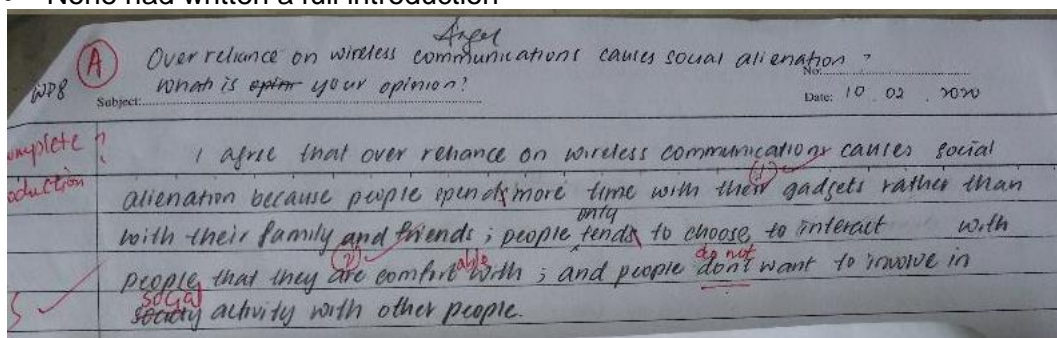 None had written a full introduction
Angel
A Over reliance on wireless communications causes social alienation ?
WP8 What is your opinion?
Subject: No:
Date: 10 . 02 . 2020
I agree that over reliance on wireless communications causes social
(1)
alienation because people spends more time with their gadgets rather than
only
with their family and friends ; people tends to choose to interact with
(2) able do not
people that they are comfort with ; and people don't want to involve in
social
society activity with other people.